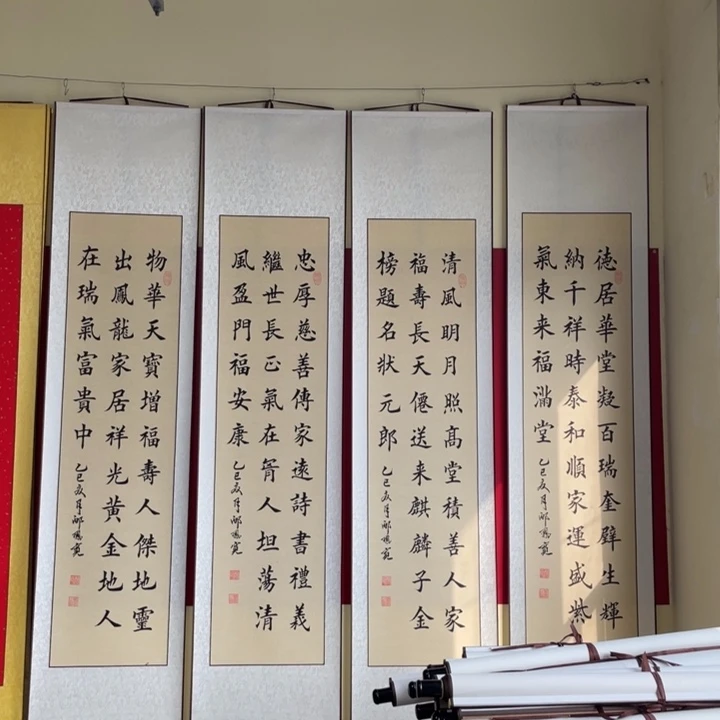 徳居華堂凝百瑞奎壁生輝
納千祥時泰和順家運盛紫
氣東来福滿堂
乙巳夏月
清風明月照髙堂積善人家
福壽長天僊送来麒麟子金
榜題名狀元郎
乙巳夏月
忠厚慈善傳家遠詩書禮義
繼世長正氣在胷人坦蕩清
風盈門福安康
乙巳夏月
物華天寶增福壽人傑地靈
出鳳龍家居祥光黃金地人
在瑞氣富貴中
乙巳夏月